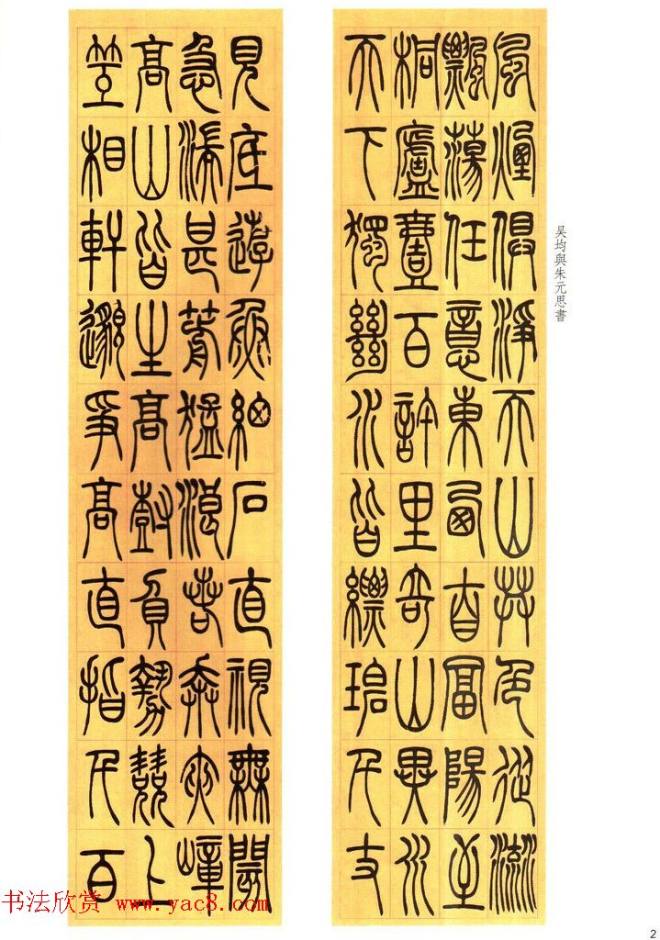 吴均與朱元思書
風煙俱淨天山共色從流
飄蕩任意東西自富陽至
桐廬壹百許里奇山異水
天下獨絕水皆縹碧千丈
見底游魚細石直視無閡
急湍甚箭猛浪若奔夾嶂
高山皆生高樹負勢競上
笠相軒邈爭高直指千百
书法欣赏 www.yac8.com
2